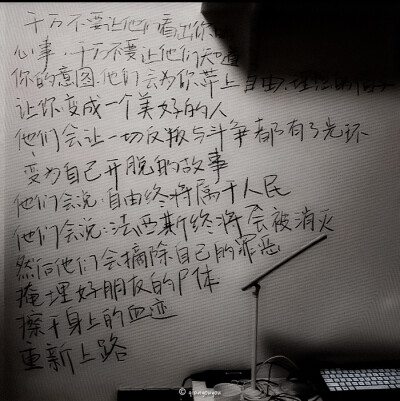 千万不要让他们看出你
心事.千万不要让他们知道
你的意图.他们会为你带上自由.理想的
让你变成一个美好的人
他们会让一切反叛与斗争都有了光环
变为自己开脱的故事
他们会说:自由终将属于人民
他们会说:法西斯终将会被消灭
然后他们会摘除自己的罪恶
掩埋好朋友的尸体
擦干身上的血迹
重新上路